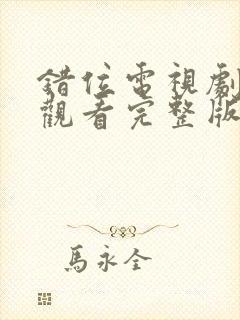 錯位電視劇
觀看完整版
馬永全